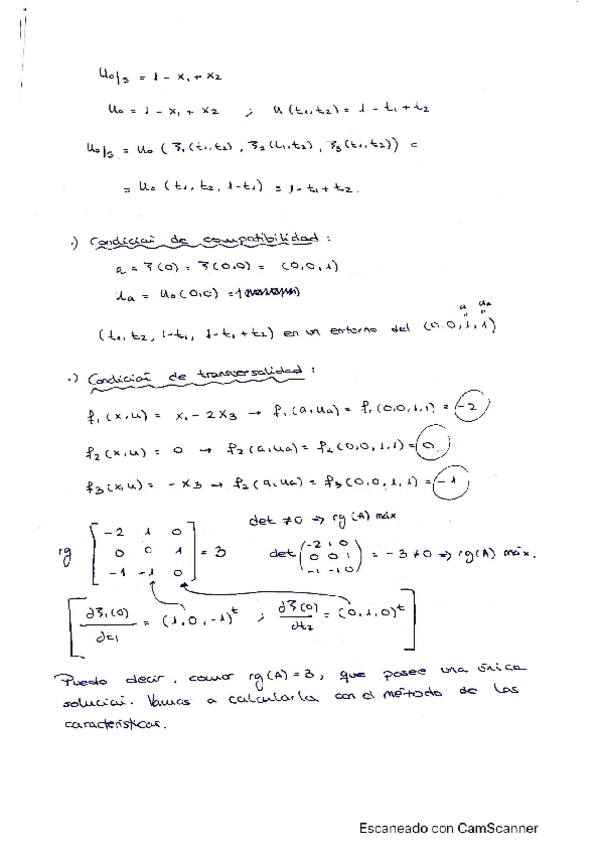 u₀/s = 1 - x₁ + x₂
u₀ = 1 - x₁ + x₂ ; u(t₁,t₂) = 1 - t₁ + t₂
u₀/s = u₀(ζ₁(t₁,t₂), ζ₂(t₁,t₂), ζ₃(t₁,t₂)) =
= u₀(t₁, t₂, 1-t₁) = 1-t₁+t₂.
·) Condición de compatibilidad:
a = ζ(0) = ζ(0,0) = (0,0,1)
ua = u₀(0,0) = 1
a ua
(t₁, t₂, 1-t₁, 1-t₁+t₂) en un entorno del (0,0,1,1)
·) Condición de transversalidad:
f₁(x,u) = x₁ - 2x₃ → f₁(a,ua) = f₁(0,0,1,1) = -2
f₂(x,u) = 0 → f₂(a,ua) = f₂(0,0,1,1) = 0
f₃(x,u) = -x₃ → f₂(a,ua) = f₃(0,0,1,1) = -1
det ≠0 ⇒ rg(A) máx
-2 1 0
rg 0 0 1 = 3 det(-2 1 0 0 0 1 -1 -1 0) = -3 ≠0 ⇒ rg(A) máx.
-1 -1 0
[∂ζ₁(0)/∂t₁ = (1,0,-1)ᵗ ; ∂ζ(0)/∂t₂ = (0,1,0)ᵗ]
Puedo decir, como rg(A)=3, que posee una única
solución. Vamos a calcularla con el método de las
características.
Escaneado con CamScanner